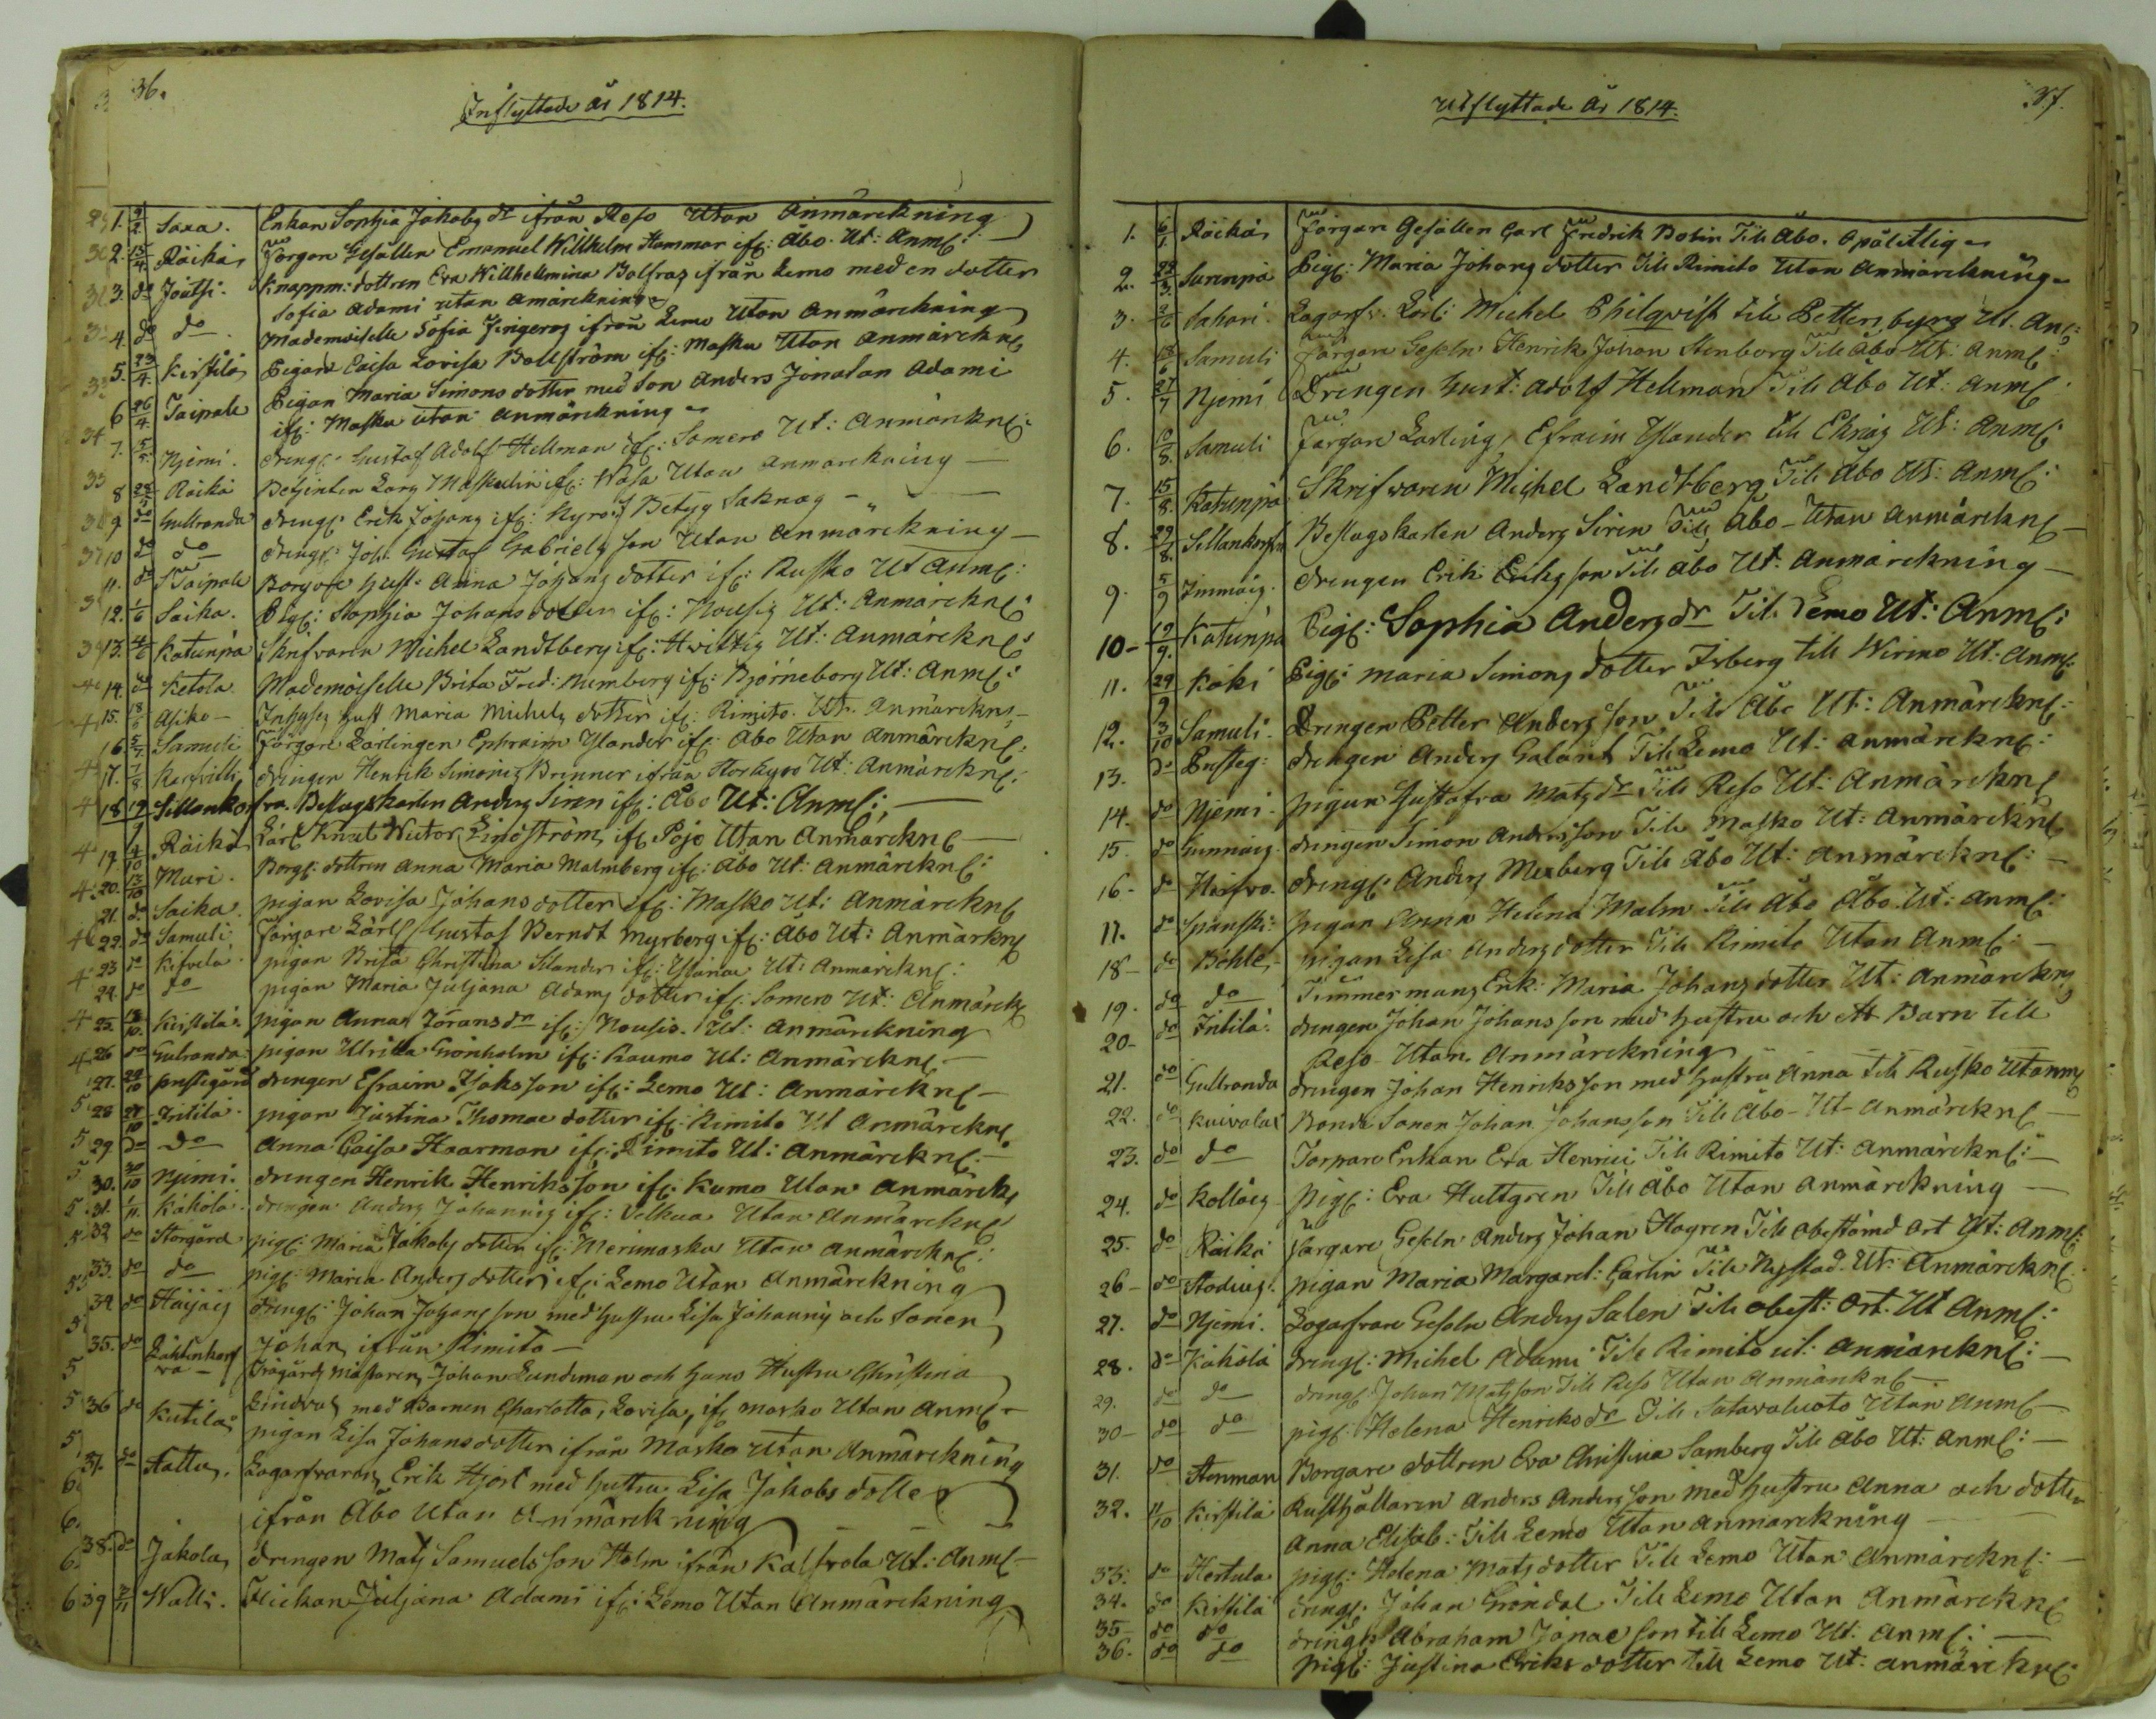 36.
Inflyttade år 1814.
1. 9/2 Saxa. Enkan Sophia Jakobs dr ifrån Reso Utan Anmärckning
2. 15/4. Räikäs Förgare Gesällen Emanuel Willhelm Hammar if: Åbo. Ut: Anm:
3. do Joutsi. Knappm: dottren Eva Willhelmina Bolfras ifrån Lemo med en dotter
Sofia Adami utan Amärckning
4. do do Mademoiselle Sofia Zingeros ifrån Lemo Utan Anmärckning
5. 23/4. Kirstilä Pigan Caisa Lovisa Ballström if: Masku Utan Anmärckn:
6 26/4. Taipale Pigan Maria Simons dotter med Son Anders Jonatan Adami
if: Masku utan Anmärckning
7. 5/5. Njemi. Dreng: Gustaf Adolf Hellman if: Somero Ut: Anmärckn:
8 28/5 Räikä Betjenten Lars Maskulin if: Wasa Utan Anmärckning
9 do Gullranda Dreng: Erik Johans if: Nyro Betyg Saknas
10 do do Dreng: Joh: Gustaf Gabriels son Utan Anmärckning
11. do Taipale Borgare hust: Anna Johans dotter if: Rusko Ut Anm:
12. 1/6 Saika. Pig: Sophia Johansdotter if: Nousis Ut: Anmärckn:
13. 4/6 Katunpä Skrifvaren Michel Landtberg if: Hvittis Ut: Anmärckn:
14. do Ketola. Mademoiselle Brita Fred: Numberg if: Björneborg Ut: Anm:
15. 18/6 Asiko Inhyses hust Maria Michels dotter if: Rimito. Ut: Anmärckn:
16 5/7 Samuli Förgare Lärlingen Ephraim Ylander if: Åbo Utan Anmärckn:
17. 7/8 Drengen Henrik Simonis Brinner ifrån Storkyro Ut: Anmärckn:
18 19/9 Sillankorfva. Beslagskarlen Anders Siren if: Åbo Ut: Anm:
19. 4/10 Räikä Lärl Knut Victor Lindström if: Pojo Utan Anmärckn:
20. 13/10 Muri. Borg: dottren Anna Maria Malmberg if: Åbo Ut: Anmärckn:
21. do Saika. pigan Lovisa Johans dotter if: Masko Ut: Anmärckn:
22. do Samuli Förgare Lärl Gustaf Berndt Myrberg if: Åbo Ut: Anmärkn:
23 do pigan Brita Christina Selander if: Ylänae Ut: Anmärckn:
24. do do pigan Maria Juljana Adams dotter if: Somero Ut: Anmärck:
25. 18/10. Kirstilä. pigan Anna Jörans dr if: Nousis. Ut: Anmärckning
26 do Gulranda. pigan Ulrika Grönholm if: Raumo Ut: Anmärckn:
27. 22/10 prestegård drengen Efraim Isaksson if: Lemo Ut: Anmärckn:
28 27/10 Iritilä. pigan Justina Thomae dotter if: Rimito Ut Anmärckn:
29. do do Anna Caisa Haarman if: Rimito Ut: Anmärckn:
30. 30/10 Njemi. drengen Henrik Henriksson if: Kumo Utan Anmärck:
31. 1/11. Käkölä. drengen Anders Johannis if: Velkua Utan Anmärckn:
32 do Storgård pig: Maria Jakobs dotter if: Merimasku Utan Anmärckn:
33. do do pig: Maria Anders dotter if: Lemo Utan Anmärckning
34 do Häijäis dreng: Johan Johans son med hustru Lisa Johannis och Sonen
Johan ifrån Rimito
35. do Lähtenkorfva Trägårds mästaren Johan Lundeman och hans Hustru Christina
Lindroos med Barnen Charlotta, Lovisa, if: masko Utan Anm:
36 do Kutila pigan Lisa Johansdotter ifrån Masko Utan Anmärckning
37. do Lagarfvaren Erik Hjort med hustru Lisa Jakobs dotter
ifrån Åbo Utan Anmärckning
38. do Jakola drengen Mats Samuelsson Holm ifrån Kalfvola Ut: Anm:
39 Walli. Flickan Juljana Adami if: Lemo Utan Anmärckning
37.
Utflyttade År 1814.
1. 6/1. Räikäs Förgare Gesällen Carl Fredrik Bohin Till Åbo. Opålitlig
2. 22/3. Surinpä Pig: Maria Johans dotter Till Rimito Utan Anmärckning
3. 2/6 Sahari. Lagarfv: Lärl: Michel Philqvist till Pettersburg Ut. An:
4. 13/6 Samuli Färgare Geseln Henrik Johan Stenborg Till Åbo Ut: Anm:
5. 27/7 Njemi Drengen Gust: Adolf Hellman Till Åbo Ut: Anm:
6. 10/8. Samuli Färgare Lärling, Efraim Ylander till Ut: Anm:
7. 15/8. Katunpä Skrifvaren Michel Landtberg Till Åbo Ut: Anm:
8. 29/8. Sillankorfva Beslagskarlen Anders Siren Till Åbo Utan Anmärckn:
9. 5/9 Immais. drengen Erik Eriksson Till Åbo Ut: Anmärckning
10 19/9. Katunpä Pig: Sophia Anders dr Till Lemo Ut: Anm:
11. 29/9 Käki Pig: Maria Simons dotter Isberg till Wirmo Ut: Anm:
12. 3/10 Samuli. Drengen Petter Anders son Till Åbo Ut: Anmärckn:
13. do Presteg: drengen Anders Galant Till Lemo Ut: Anmärckn:
14. do Njemi. pigan Gustafva Mats dr Till Reso Ut: Anmärckn:
15. do drengen Simon Andersson Till Masko Ut: Anmärckn:
16. do dreng: Anders Mexberg Till Åbo Ut: Anmärckn:
17. do Spanski: pigan Anna Helena Malm Till Åbo Åbo. Ut: Anm:
18 do Böhle. pigan Lisa Anders dotter Till Rimito Utan Anm:
19. do do Timmermans Enk: Maria Johans dotter Ut: Anmärckn:
20 do Iritilä. drengen Johan Johansson med hustru och ett Barn till
Reso Utan Anmärckning
21. do Gullranda drengen Johan Henriksson med hustru Anna till Rusko Utanm
22. do Kuivalax Bonde Sonen Johan Johansson Till Åbo Ut Anmärckn:
23. do do Torpare Enkan Eva Henrici Till Rimito Ut: Anmärckn:
24. do Kollois pig: Eva Huttgren Till Åbo Utan Anmärckning
25. do Räikä Färgare Geseln Anders Johan Hagren Till obestämd Ort Ut: Anm:
26 do pigan Maria Margaret: Carlin Till Nystad. Ut: Anmärckn:
27. do Njemi. Logarfvare Geseln Anders Salen Till obest: Ort. Ut Anm:
28. do Käkölä dreng: Michel Adami Till Rimito ut: Anmärckn:
29. do do dreng: Johan Matsson Till Reso Utan Anmärckn:
30 do do pig: Helena Henriks dr Till Satavaluoto Utan Anm:
31. do Stenman Borgare dottren Eva Christina Samberg Till Åbo Ut: Anm:
32. 11/10 Kirstilä Rusthållaren Anders Andersson med hustru Anna och dotter
Anna Elisab: Till Lemo Utan Anmärckning
33. do Hertula pig: Helena Mats dotter Till Lemo Utan Anmärckn:
34. do Kirstilä dreng: Johan Gröndal Till Lemo Utan Anmärckn:
35 do do dreng: Abraham Jonae son till Lemo Ut: Anm:
36. do do pig: Justina Eriks dotter till Lemo Ut: Anmärckn: